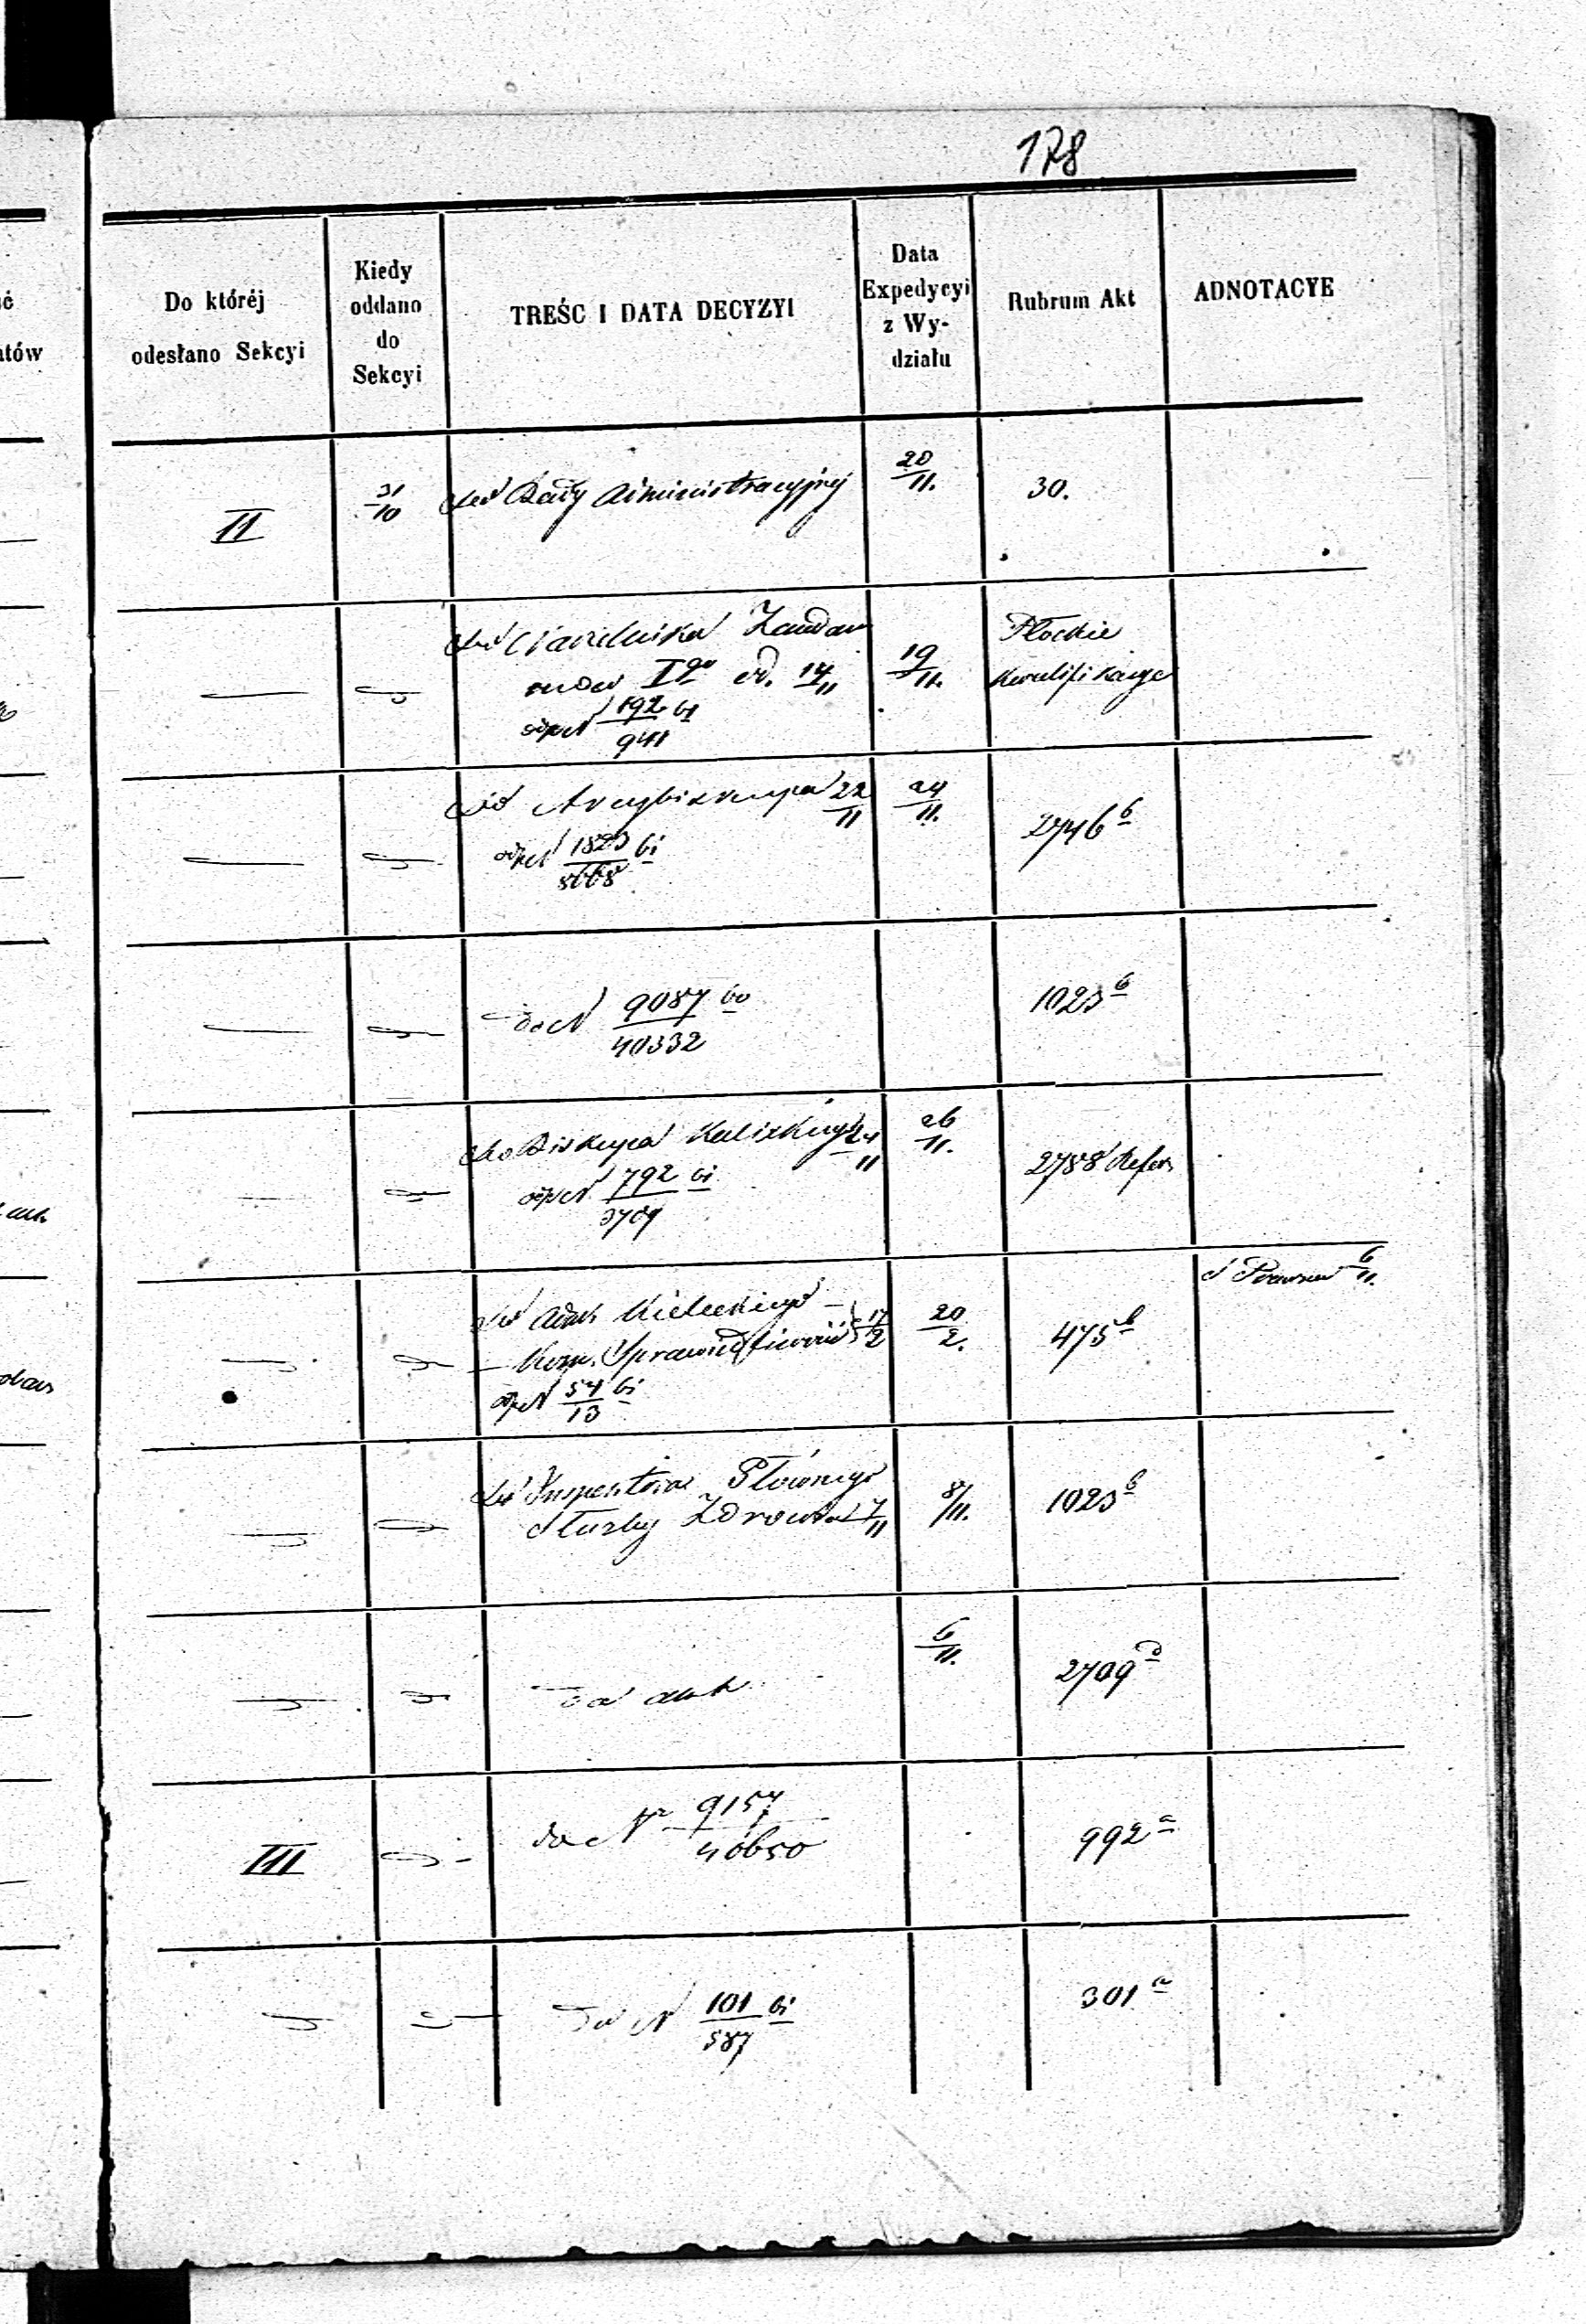 178
Do któréj odesłano Sekcyi
Kiedy oddano do Sekcyi
TREŚC I DATA DECYZYI
Data Expedycyi z Wydziału
Rubrum Akt
ADNOTACYE
II
31/10
Do Rady Administracyjnej
20/11.
30.
Do Naczelnika Żandar
mów Igo od. 14/11
odp N 192/941 bi
19/11.
Płockie
Kwalifikacye
Do Arcybiskupa 22/11
odp N 1823/5668 bi
24/11.
2746 b
do N 9087/40332 bo
1023 b
Do Biskupa Kaliskiego 24/11
odp N 792/3709 bi
26/11.
2788
Do Kieleckiego
Kom. Sprawiedliwości 17/2
odp N 54/13 bi
20/2.
475 b
6/11.
Do Inspektora Głównego
Służby Zdrowia 7/11
8/11.
1023 b
do akt
6/11.
2709 d
III
do Nr 9157/40650
992 a
do N 101/587 bi
301 a